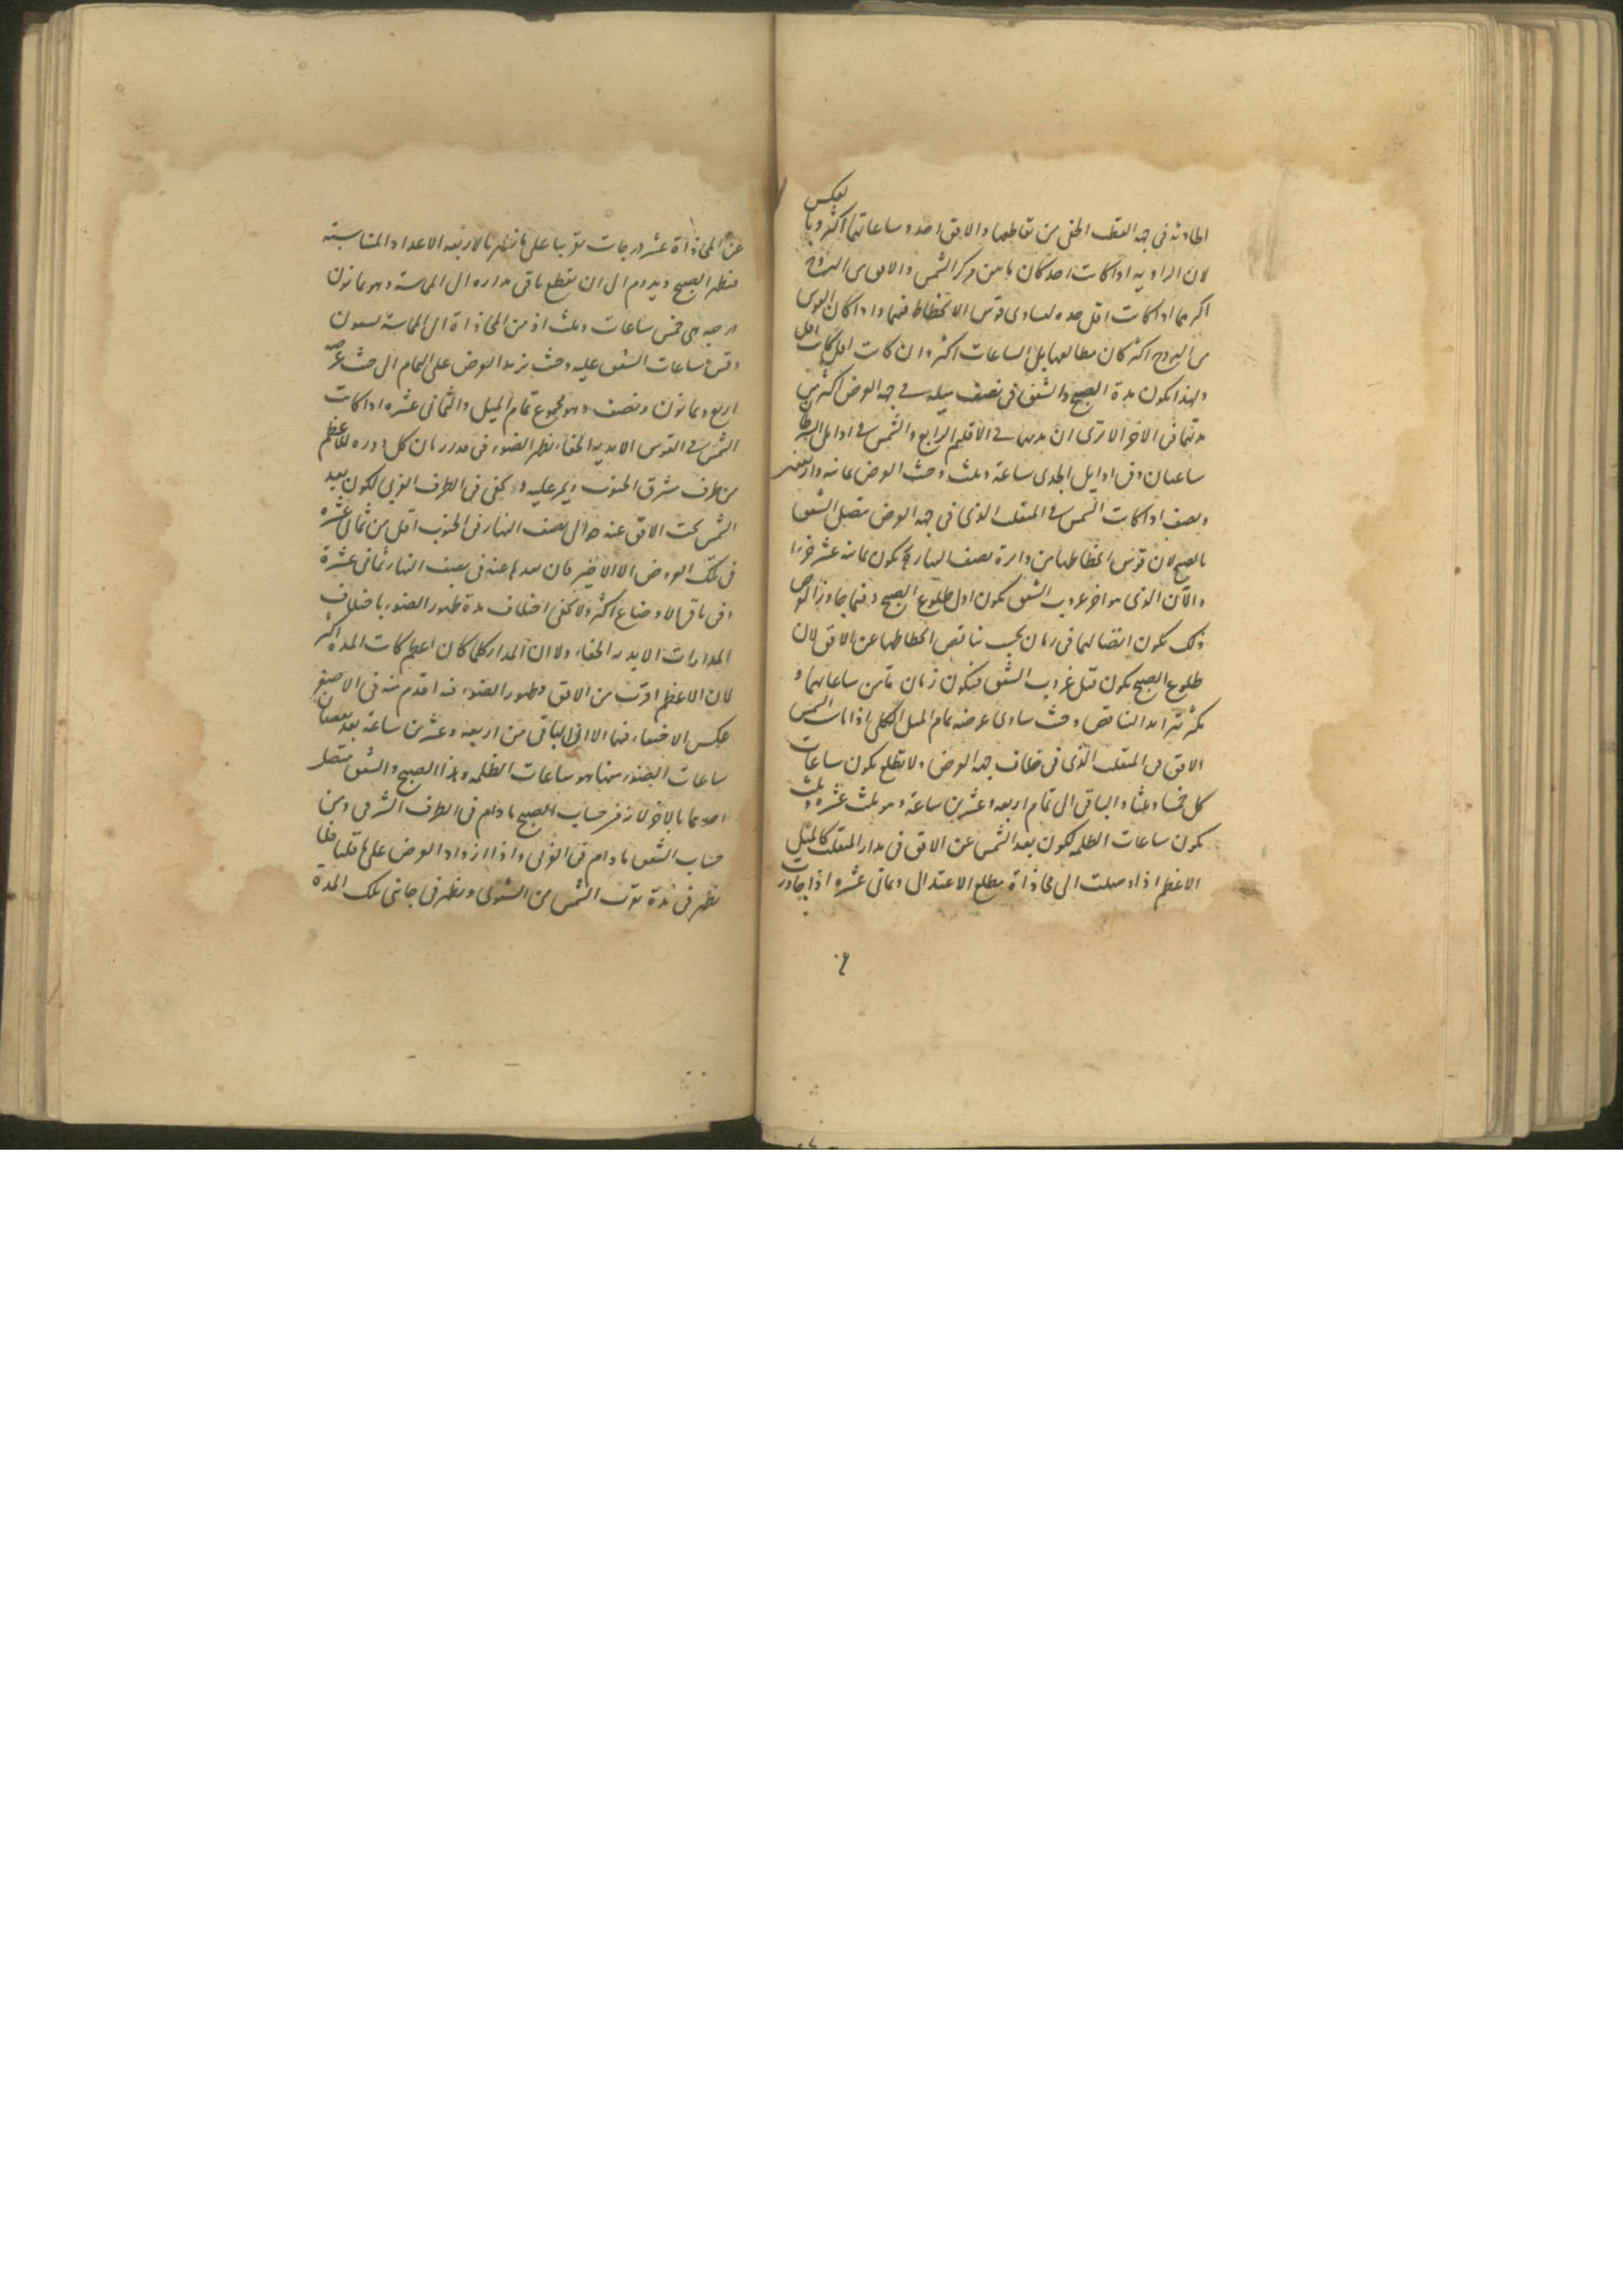 الحادثة في جهة القطب الخفي من تقاطعها والافق احد وساعاتهما اكثر وبا
بعكس
لان الزاويه اذا كانت احد كان ما بين مركز الشمس والافق من البروج
اكثر مما اذا كانت اقل حده لتساوى قوس الانحطاط فيهما واذا كان القوس
من البروج اكثر كان مطالعها بل الساعات اكثر وان كانت اقل كانت اقل
ولهذا يكون مدة الصبح والشفق في نصف ميله في جهة العرض اكثر من
مدتهما في الاخر الا ترى ان مدتهما في الاقليم الرابع والشمس في اوايل السرطان
ساعتان وفي اوايل الجدى ساعة وثلث وحيث العرض ثمانية واربعين
ونصف اذا كانت الشمس في المنقلب الذى في جهة العرض يتصل الشفق
بالصبح لان قوس انحطاطها من دايرة نصف النهار يكون ثمانية عشر جزءا
والآن الذى هو اخر غروب الشفق يكون اول طلوع الصبح وفيما جاوز العرض
ذلك يكون اتصالهما في زمان بحسب تناقص انحطاطها عن الافق لان
طلوع الصبح يكون قبل غروب الشفق فيكون زمان ما من ساعاتهما و
يكثر بتزايد التناقص وحيث ساوى عرضه تمام الميل الكلى اذا ماست الشمس
الافق من المنقلب الذى في خلاف جهة العرض ولا تطلع يكون ساعات
كل خمسا وثلثا والباقى الى تمام اربعه وعشرين ساعة وهو ثلث عشرة وثلث
يكون ساعات الظلمه لكون بعد الشمس عن الافق في مدار المنقلب كالميل
الاعظم اذا وصلت الى محاذاة مطلع الاعتدال وثمانى عشره اذا جاوزت
عن المحاذاة عشر درجات تقريبا على ما يظهر بالاربعه الاعداد المتناسبة
فيظهر الصبح ويدوم الى ان يقطع باقى مداره الى المماسة وهو ثمانون
درجه هى خمس ساعات وثلث اذ من المحاذاة الى المماسة تسعون
وقس ساعات الشفق عليه وحيث يزيد العرض على التمام الى حيث عرضه
اربع وثمانون ونصف وهو مجموع تمام الميل والثمانى عشره اذا كانت
الشمس في القوس الابدية الخفاء يظهر الضوء في قدر زمان كل دوره للاعظم
من طرف مشرق الجنوب ويمر عليه و يخفى في الطرف الغربى لكون بعد
الشمس تحت الافق عنه حوالى نصف النهار في الجنوب اقل من ثمانى عشرة
في تلك العروض الا الاخير فان بعدها عنه في نصف النهار ثمانى عشرة
وفى باقى الاوضاع اكثر ولا يخفى اختلاف مدة ظهور الضوء باختلاف
المدارات الابديه الخفاء ولا ان المدار كلما كان اعظم كانت المدة اكثر
لان الاعظم اقرب من الافق وظهور الضوء فيه اقدم منه في الاصغر
عكس الاختفاء فيهما الا ان الباقى من اربعه وعشرين ساعة بعد نقصان
ساعات الضوء منها هو ساعات الظلمه وهذا الصبح والشفق متصل
احدهما بالاخر لانه في حساب الصبح ما دام في الطرف الشرقى ومن
حساب الشفق ما دام في الغربى واذا ازداد العرض على ما قلنا فلا
يظهر في مدة قرب الشمس من الشتوى ويظهر في جانبى تلك المدة